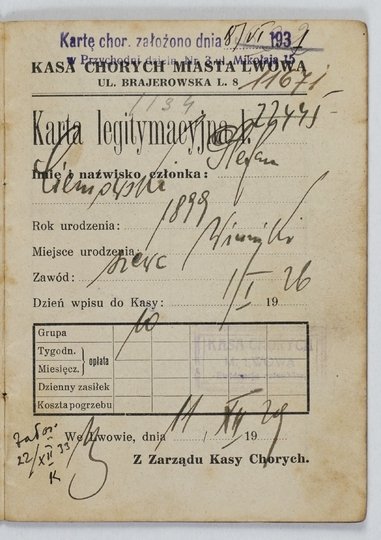 Kartę chor. założono dnia 8/VI 1932
w Przychodni dzieln. Nr. 3 ul. Mikołaja 15
KASA CHORYCH MIASTA LWOWA
UL. BRAJEROWSKA L. 8 11671
1134
Karta legitymacyjna l. 22475
Stefan
Imię i nazwisko członka:
Rok urodzenia: 1899
Miejsce urodzenia: Winniki
Zawód: szewc
Dzień wpisu do Kasy: 1/I 1926
Grupa 10
Tygodn.
Miesięcz.
opłata
Dzienny zasiłek
Koszta pogrzebu
KASA CHORYCH
M. LWOWA
We Lwowie, dnia 11/XII 1929
Z Zarządu Kasy Chorych.
22/XII 33
K